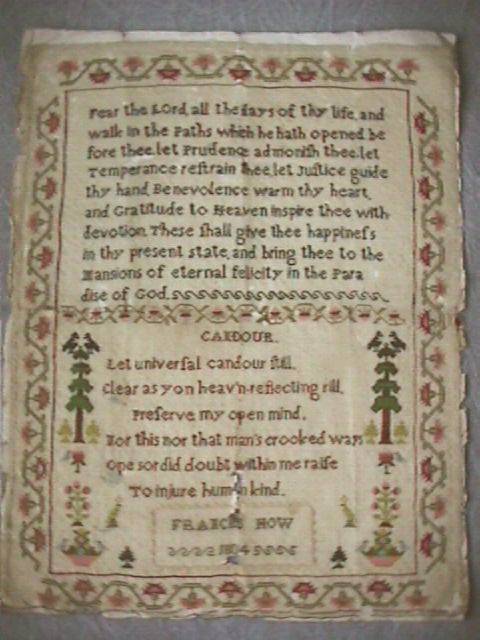 Fear the LOrd, all the days of thy life, and
walk in the Paths which he hath opened be
fore thee, let Prudence admonish thee, let
Temperance reſtrain thee, let Juſtice guide
thy hand, Benevolence warm thy heart,
and Gratitude to Heaven inspire thee with
devotion. These ſhall give thee happineſs
in thy present state, and bring thee to the
Mansions of eternal felicity in the Para
dise of God.
CANDOUR.
Let univerſal candour ſtill,
Clear as yon heav'n-reflecting rill,
Preserve my open mind,
Nor this nor that man's crooked ways
One sordid doubt within me raiſe
To injure human kind.
FRANCES HOW
1804